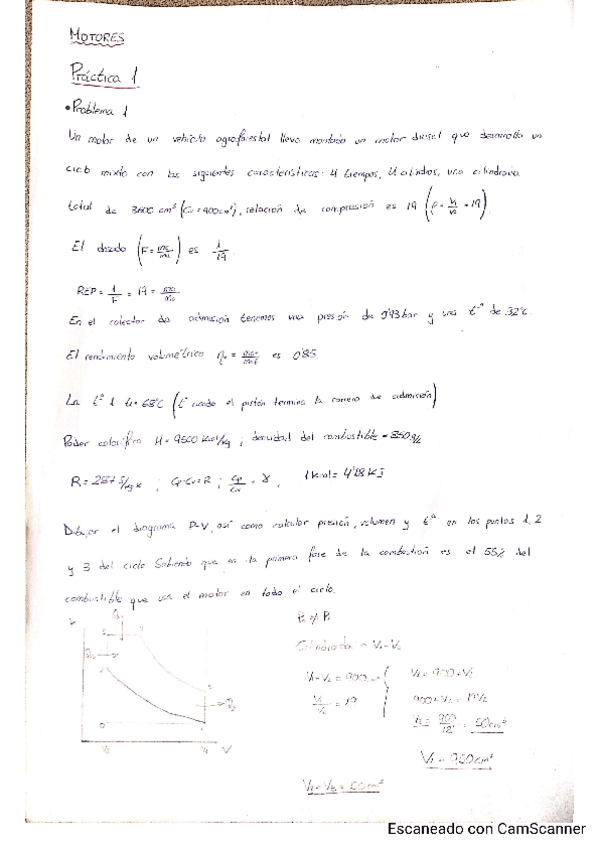 MOTORES
Práctica 1
• Problema 1
Un motor de un vehículo agroforestal lleva montado un motor diesel que desarrolla un
ciclo mixto con las siguientes características: 4 tiempos, 4 cilindros, una cilindrada
total de 3600 cm³ (Cu = 900 cm³), relación de compresión es 19 (ρ = V₁/V₂ = 19).
El dosado (F = mc/ma) es 1/19
REP = 1/F = 19 =
En el colector de admisión tenemos una presión de 0'93 bar y una tª de 32ºC.
El rendimiento volumétrico ηv = es 0'85.
La tª 1 t₁ = 68ºC (tª cuando el pistón termina la carrera de admisión)
Poder calorífico H = 9500 Kcal/kg ; densidad del combustible = 850 g/l
R = 287 J/kg K ; Cp-Cv = R ; Cp/Cv = γ , 1 kcal = 4'18 KJ
Dibujar el diagrama P-V, así como calcular presión, volumen y tª en los puntos 1, 2
y 3 del ciclo. Sabiendo que en la primera fase de la combustión es el 55% del
combustible que usa el motor en todo el ciclo.
Cilindrada = V₁ - V₂
V₁ - V₂ = 900 V₁ = 900 + V₂
V₁/V₂ = 19 900 + V₂ = 19 V₂
V₂ = 900/18 = 50 cm³
V₁ = 950 cm³
V = 50 cm³
Escaneado con CamScanner